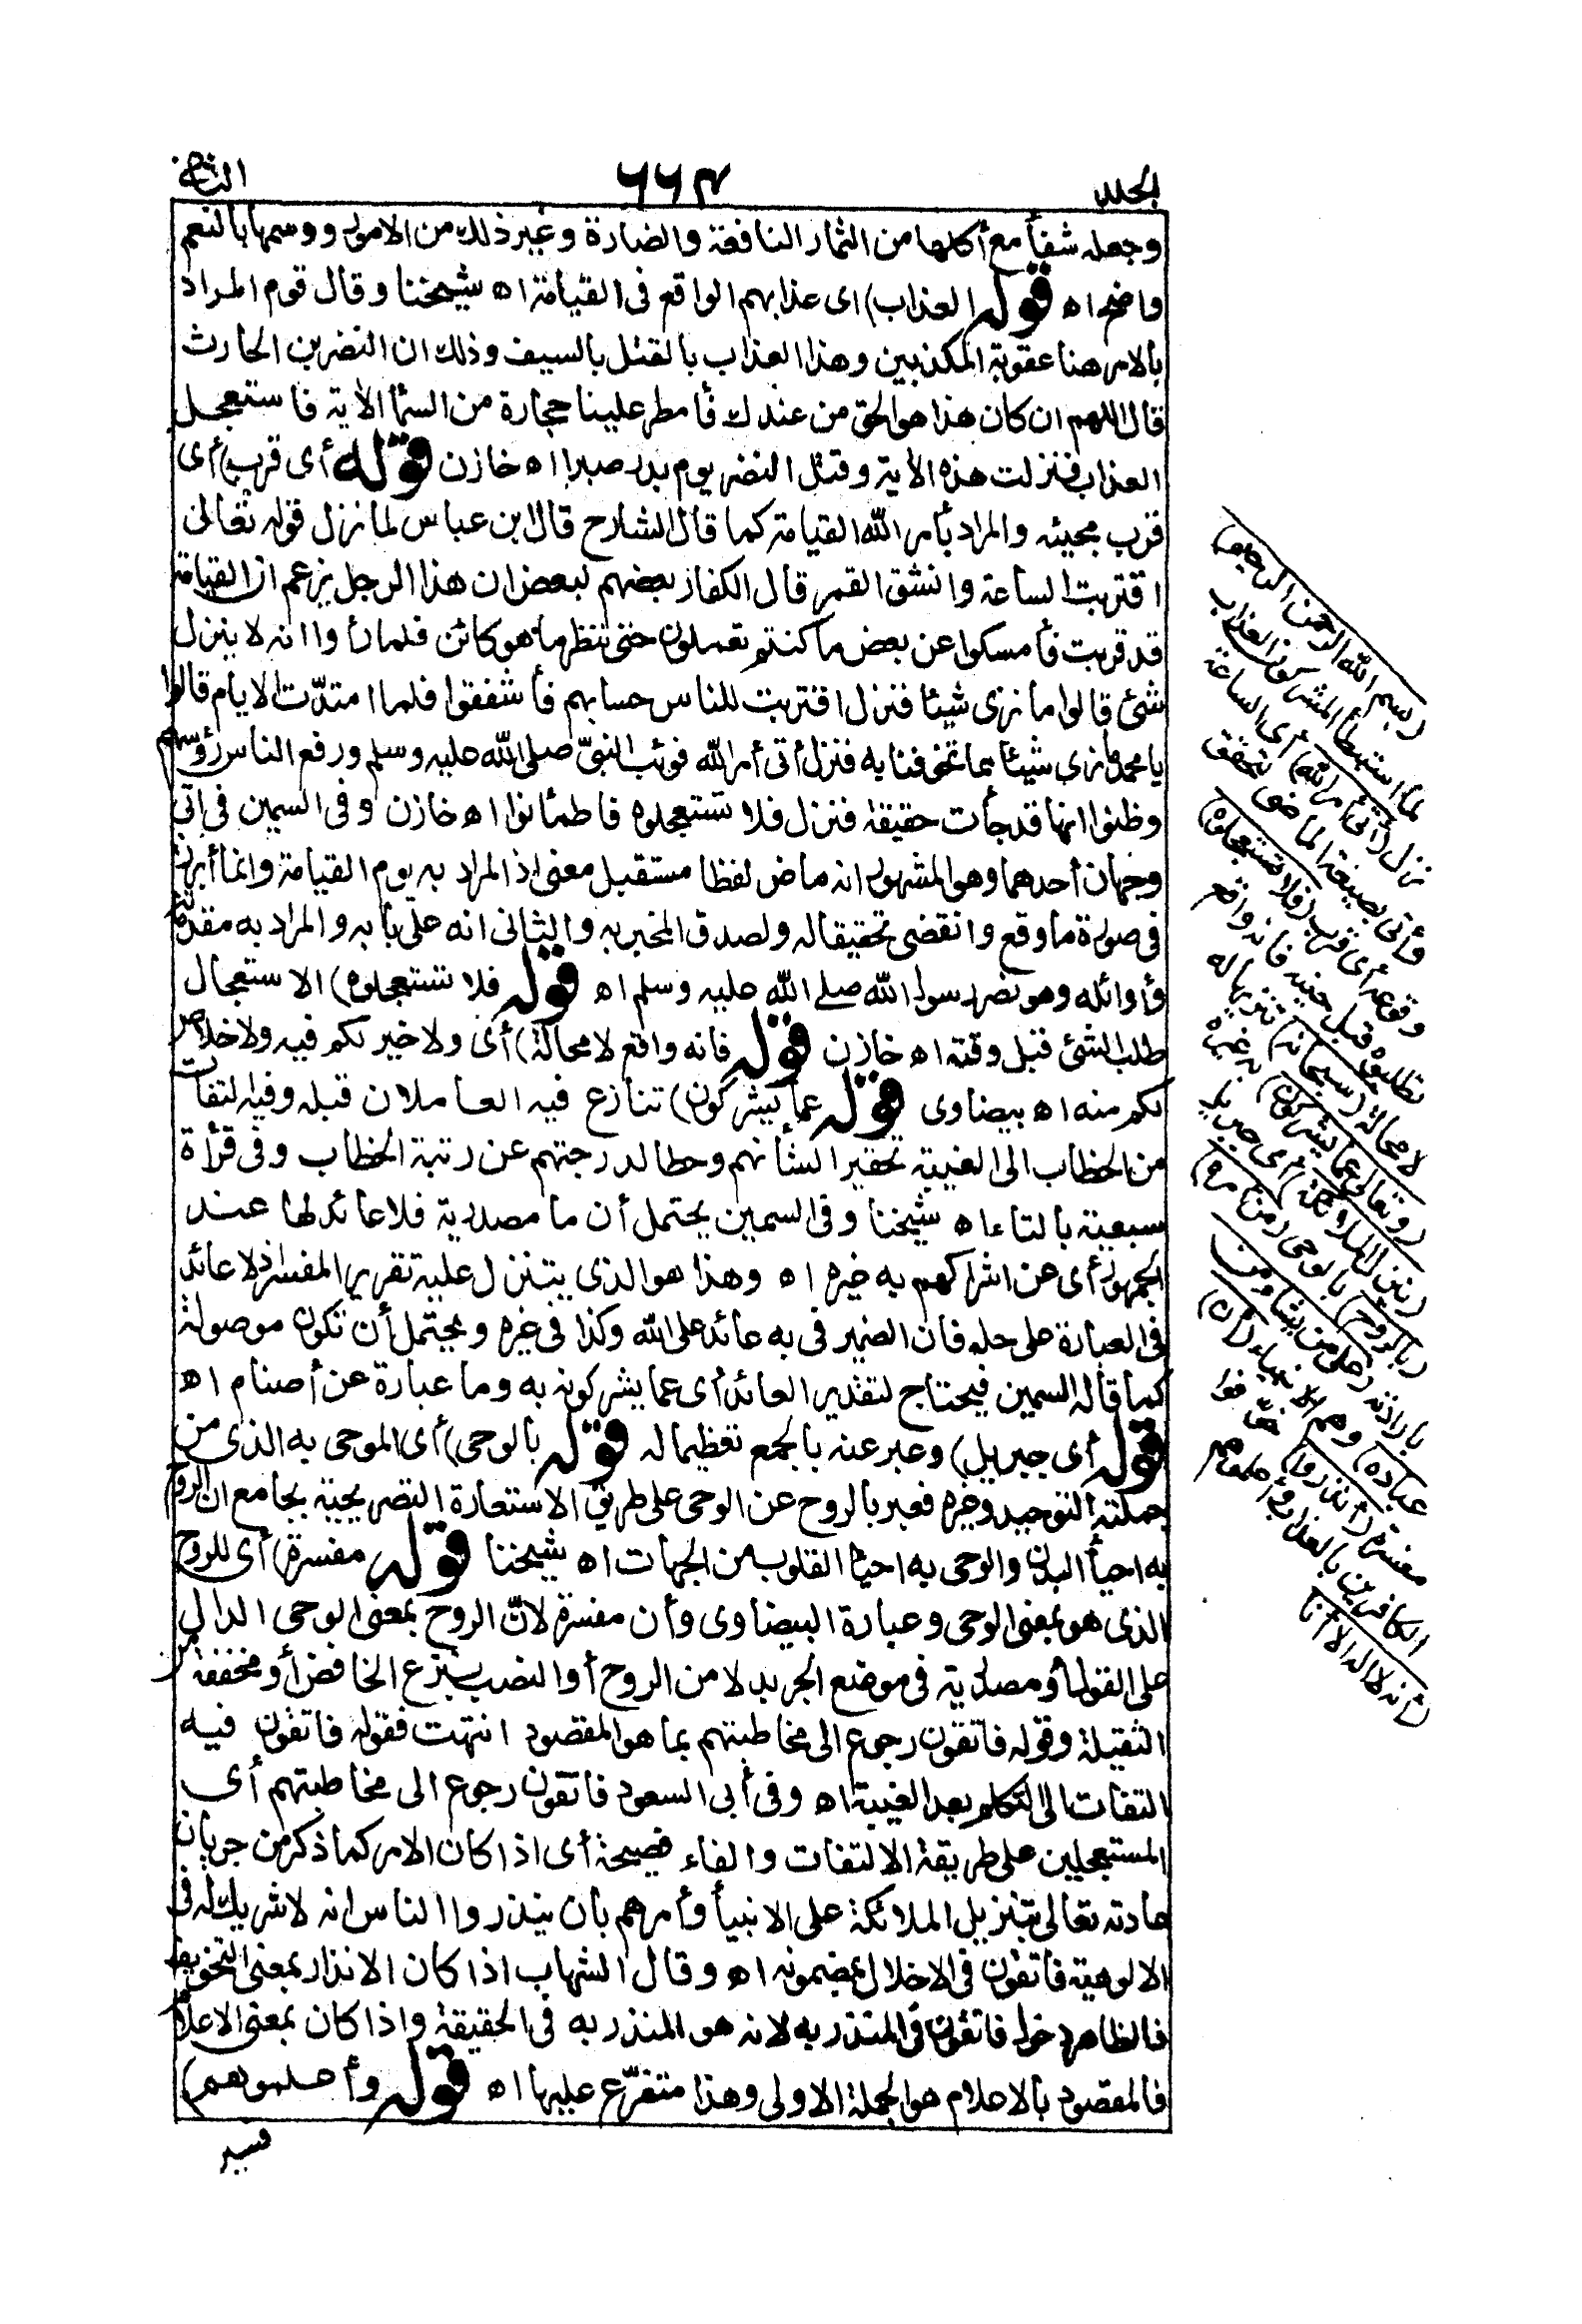 الجلد ٦٦٣ الثانى
وجعله شفأ مع أكلها من الثمار النافعة والضارة وغير ذلك من الامور ووسمها بالنعم
واضح اه قوله العذاب) اى عذابهم الواقع فى القيامة اه شيخنا وقال قوم المراد
بالامر هنا عقوبة المكذبين وهذا العذاب بالقتل بالسيف وذلك ان النضر بن الحارث
قال اللهم ان كان هذا هو الحق من عندك فأمطر علينا حجارة من السمأ الأية فاستعجل
العذاب فنزلت هذه الأية وقتل النضر يوم بدر صبرا اه خازن قوله أى قرب) أى
قرب مجيئه والمراد بأمر الله القيامة كما قال الشارح قال ابن عباس لما نزل قوله تعالى
اقتربت الساعة وانشق القمر قال الكفار بعضهم لبعض ان هذا الرجل يزعم ان القيامة
قد قربت فأمسكوا عن بعض ما كنتم تعملون حتى تنظر ما هو كائن فلما رأوا انه لا ينزل
شئ قالوا ما نرى شيئا فنزل اقتربت للناس حسابهم فأشفقوا فلما امتدّت الايام قالوا
يا محمد ما نرى شيئا مما تخوفنا به فنزل أتى أمر الله فوثب النبىّ صلى الله عليه وسلم ورفع الناس رؤسهم
وظنوا انها قد جأت حقيقة فنزل فلا تستعجلوه فاطمأنوا اه خازن وفى السمين فى أتى
وجهان أحدهما وهو المشهور انه ماض لفظا مستقبل معنى اذ المراد به يوم القيامة وانما أبرز
فى صورة ما وقع وانقضى تحقيقا له ولصدق المخبر به والثانى انه على بابه والمراد به مقدماته
وأوائله وهو نصر رسول الله صلى الله عليه وسلم اه قوله فلا تستعجلوه) الاستعجال
طلب الشئ قبل وقته اه خازن قوله فانه واقع لا محالة) أى ولا خير لكم فيه ولا خلاص
لكم منه اه بيضاوى قوله عما يشركون) تنازع فيه العاملان قبله وفيه التفات
من الخطاب الى الغيبة تحقير الشأنهم وحطا لدرجتهم عن رتبة الخطاب وفى قرأة
سبعية بالتاء اه شيخنا وفى السمين يحتمل أن ما مصدرية فلا عائد لها عند
الجمهور أى عن اشراكهم به غيره اه وهذا هو الذى يتنزل عليه تقرير المفسر اذ لا عائد
فى العبارة على حله فان الضمير فى به عائد على الله وكذا فى غيره ويحتمل أن تكون موصولة
كما قاله السمين فيحتاج لتقدير العائد أى عما يشركونه به وما عبارة عن أصنام اه
قوله أى جبريل) وعبر عنه بالجمع تعظيما له قوله بالوحى) أى الموحى به الذى من
جملته التوحيد وغيره فعبر بالروح عن الوحى على طريق الاستعارة التصريحية بجامع ان الروح
به احيأ البدن والوحى به احيأ القلوب من الجهات اه شيخنا قوله مفسرة) أى للروح
الذى هو بمعنى الوحى وعبارة البيضاوى وأن مفسرة لانّ الروح بمعنى الوحى الدال
على القول أو مصدرية فى موضع الجر بدلا من الروح أو النصب بنزع الخافض أو مخففة من
الثقيلة وقوله فاتقون رجوع الى مخاطبتهم بما هو المقصود انتهت فقوله فاتقون فيه
التفات الى التكلم بعد الغيبة اه وفى أبى السعود فاتقون رجوع الى مخاطبتهم أى
المستعجلين على طريقة الالتفات والفاء فصيحة أى اذا كان الامر كما ذكر من جريان
عادته تعالى بتنزيل الملائكة على الانبيأ وأمرهم بأن ينذروا الناس انه لا شريك له فى
الالوهية فاتقون فى الاخلال بمضمونه اه وقال الشهاب اذا كان الانذار بمعنى التخويف
فالظاهر دخول فاتقون فى المنذر به لانه هو المنذر به فى الحقيقة واذا كان بمعنى الاعلام
فالمقصود بالاعلام هو الجملة الاولى وهذا متفرّع عليها اه قوله وأعلموهم)
(بسم الله الرحمن الرحيم)
لما استبطأ المشركون العذاب
نزل (أتى أمر الله) أى الساعة
وأتى بصيغة الماضى لتحقق
وقوعه أى قرب (فلا تستعجلوه)
تطلبوه قبل حينه فانه واقع
لا محالة (سبحانه) تنزيها له
(وتعالى عما يشركون) به غيره
(ينزل الملائكة) أى جبريل
(بالروح) بالوحى (من أمره)
بارادته (على من يشاء من
عباده) وهم الانبياء (أن)
مفسرة (أنذروا) خوّفوا
الكافرين بالعذاب وأعلموهم
(أنه لا اله الا أنا